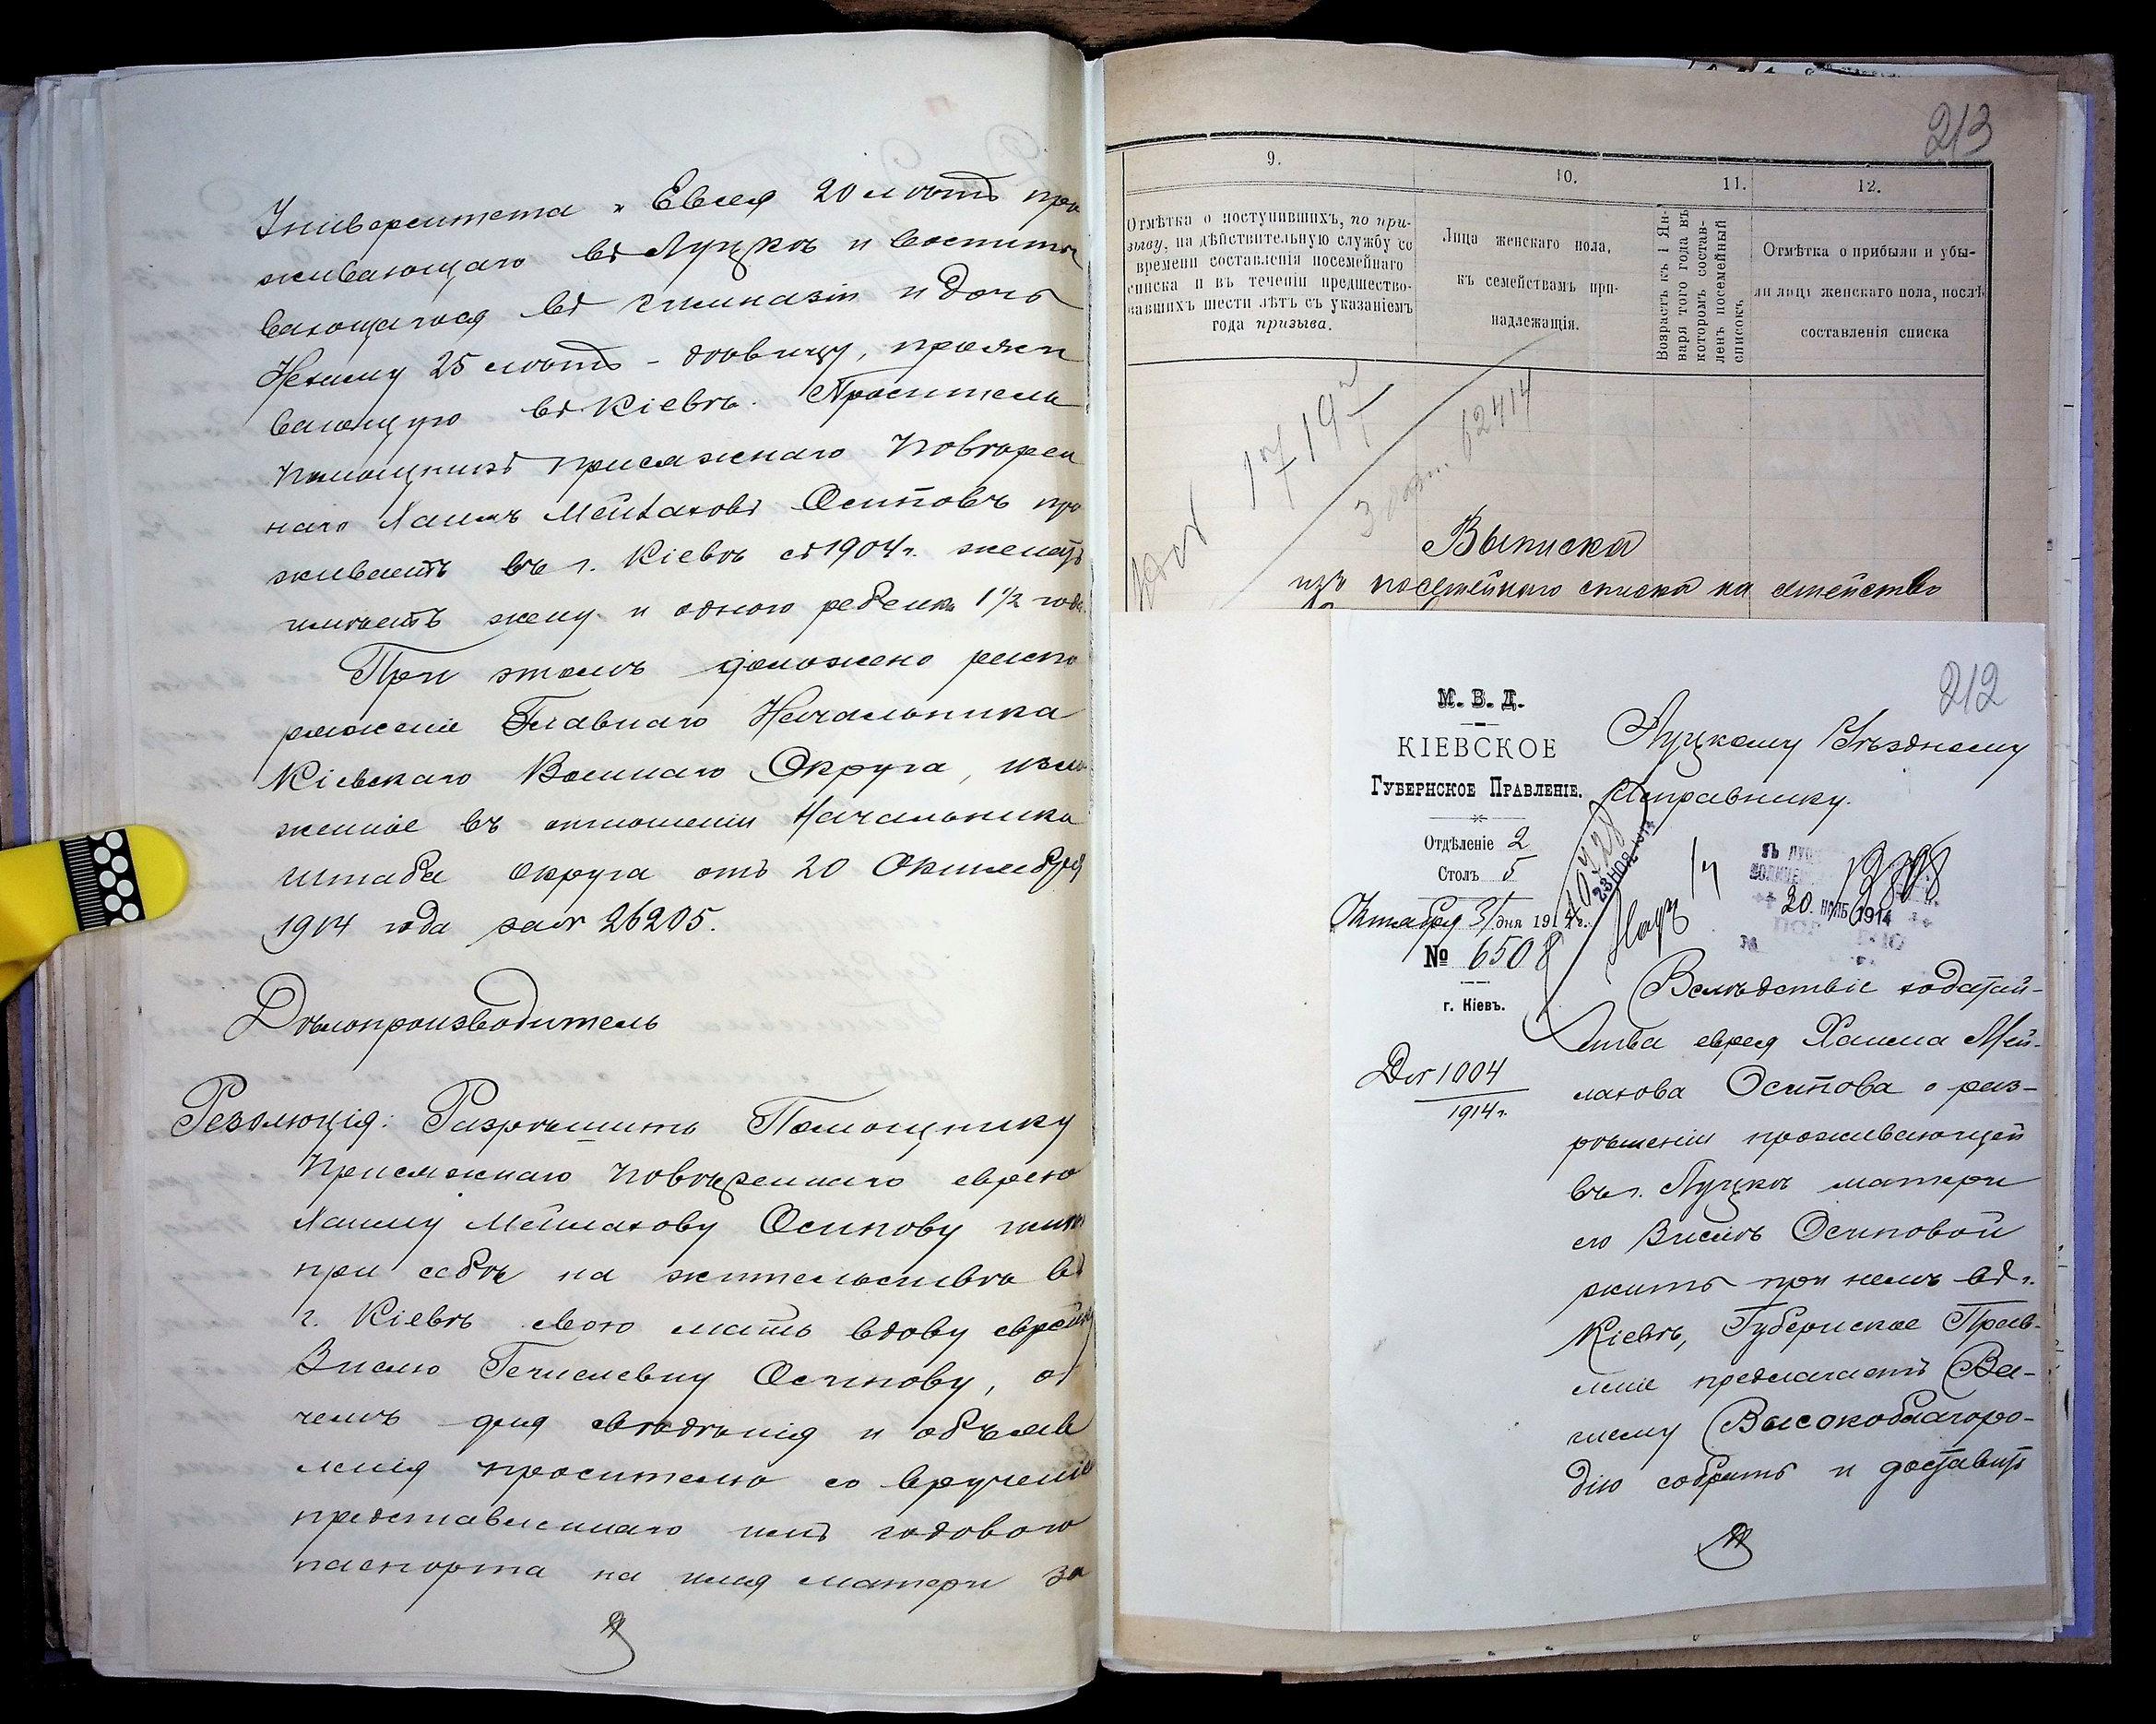 Университета и Евсея 20 лѣтъ про
живающаго въ Луцкѣ и воспиты
вающагося въ гимназіи и дочь
Нехиму 25 лѣтъ - дѣвицу, прожи
вающую въ Кіевѣ. Проситель
помощникъ присяжнаго повѣрен
наго Хаимъ Мейлаховъ Осиповъ про
живаетъ въ г. Кіевѣ съ 1904 г. женатъ
имѣетъ жену и одного ребенка 1½ года.
При этомъ доложено распо
ряженіе Главнаго Начальника
Кіевскаго Военнаго Округа, изло
женное въ отношеніи Начальника
штаба округа отъ 20 Октября
1914 года за № 26205.
Дѣлопроизводитель
Резолюція: Разрѣшить Помощнику
Присяжнаго Повѣреннаго еврею
Хаиму Мейлахову Осипову имѣть
при себѣ на жительствѣ въ
г. Кіевѣ свою мать вдову еврейку
Зислю Гечислевну Осипову, о
чемъ для свѣдѣнія и объяв
ленія просителю со врученіемъ
представленнаго имъ годового
паспорта на имя матери за
213
9.
10.
11.
12.
Отмѣтка о поступившихъ, по при-
зыву, на дѣйствительную службу со
времени составленія посемейнаго
списка и въ теченіи предшество-
вавшихъ шести лѣтъ съ указаніемъ
года призыва.
Лица женскаго пола,
къ семействамъ при-
надлежащія.
Возрастъ къ 1 Ян-
варя того года въ
которомъ состав-
ленъ посемейный
списокъ.
Отмѣтка о прибыли и убы-
ли лицъ женскаго пола, послѣ
составленія списка
62414
Выписка
изъ посемейнаго списка на семейство
212
М. В. Д.
КІЕВСКОЕ
Губернское Правленіе.
Отдѣленіе 2
Столъ 5
Октября 31 дня 1914 г.
№ 6508
г. Кіевъ.
Д № 1004
1914 г.
Луцкому Уѣздному
Исправнику.
23 НОЯ 1914
20. НОЯБ 1914
Вслѣдствіе ходатай-
ства еврея Хаима Мей-
лахова Осипова о раз-
рѣшеніи проживающей
въ г. Луцкѣ матери
его Зислѣ Осиповой
жить при немъ въ г.
Кіевѣ, Губернское Прав-
леніе предлагаетъ Ва-
шему Высокоблагоро-
дію собрать и доставить